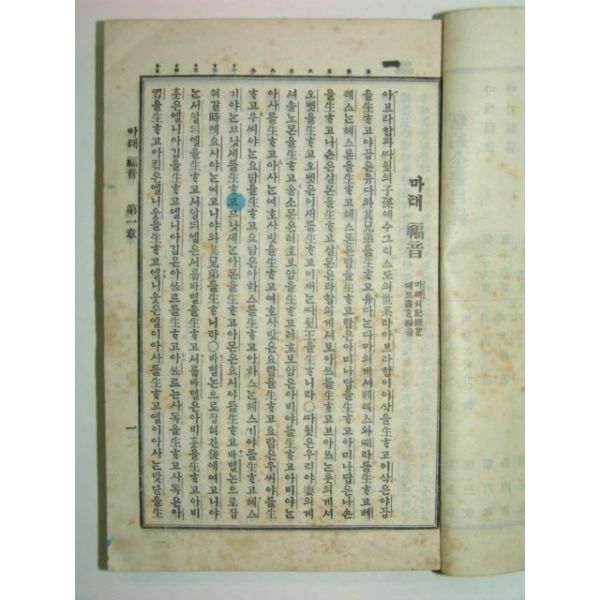 마태 福音
아브라함과따윗의子孫예수그리스도의世系라아브라함이이삭을生ᄒᆞ고이삭은야곱
을生ᄒᆞ고야곱은유다와其兄弟를生ᄒᆞ고유다는다마의게셔베레스와쎄라를生ᄒᆞ고베
레스는헤스론을生ᄒᆞ고헤스론은람을生ᄒᆞ고람은아미나답을生ᄒᆞ고아미나답은나손
을生ᄒᆞ고나손은살몬을生ᄒᆞ고살몬은라합의게셔보아쓰를生ᄒᆞ고보아쓰는룻의게셔
오벳을生ᄒᆞ고오벳은이새를生ᄒᆞ고이새는따윗王을生ᄒᆞ니라○따윗은우리야妻의게
셔솔노몬을生ᄒᆞ고솔노몬은러호보암을生ᄒᆞ고러호보암은아비야를生ᄒᆞ고아비야는
아사를生ᄒᆞ고아사는여호사밧을生ᄒᆞ고여호사밧은요람을生ᄒᆞ고요람은우씨야를生
ᄒᆞ고우씨야는요담을生ᄒᆞ고요담은아하스를生ᄒᆞ고아하스는헤스기야를生ᄒᆞ고헤스
기야는므낫세를生ᄒᆞ고므낫세는아몬을生ᄒᆞ고아몬은요시야를生ᄒᆞ고바벨논으로잡
혀갈時에요시야는여고니야와其兄弟를生ᄒᆞ니라○바벨논으로잡혀간後에여고니야
는서알듸엘을生ᄒᆞ고서알듸엘은서룹바벨을生ᄒᆞ고서룹바벨은아비훗을生ᄒᆞ고아비
훗은엘니아김을生ᄒᆞ고엘니아김은아쏘르를生ᄒᆞ고아쏘르는사독을生ᄒᆞ고사독은아
킴을生ᄒᆞ고아킴은엘니웃을生ᄒᆞ고엘니웃은엘이아사를生ᄒᆞ고엘이아사는맛단을生
마태 福音 第一章 一